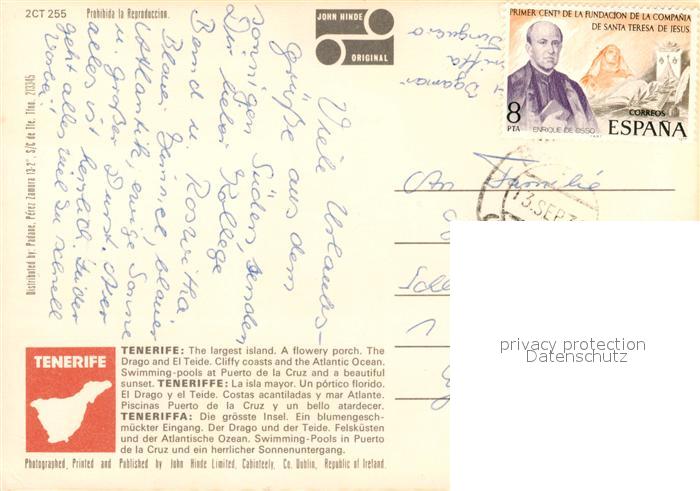 2CT 255 Prohibida la Reproduccion.
JOHN HINDE
ORIGINAL
PRIMER CENTº DE LA FUNDACION DE LA COMPAÑIA
DE SANTA TERESA DE JESUS
8
PTA
ENRIQUE DE OSSO
CORREOS
ESPAÑA
13. SEP. 7
Viele Urlaubs-
grüße aus dem
sonnigen Süden, senden
Dir lieber Kollege
Bernd u. Roswitha
Blauer Himmel blauer
Atlantik, ewige Sonne
u. großer Durst. Aber
alles ist herrlich. Leider
geht alles viel zu schnell
vorbei!
Dagmar
An Familie
Distributed by: Padane, Pérez Zamora 13-2°, S/C de Tfe. Tfno. 213345
privacy protection
Datenschutz
TENERIFE
TENERIFE: The largest island. A flowery porch. The
Drago and El Teide. Cliffy coasts and the Atlantic Ocean.
Swimming-pools at Puerto de la Cruz and a beautiful
sunset. TENERIFFE: La isla mayor. Un pórtico florido.
El Drago y el Teide. Costas acantiladas y mar Atlante.
Piscinas Puerto de la Cruz y un bello atardecer.
TENERIFFA: Die grösste Insel. Ein blumengesch-
mückter Eingang. Der Drago und der Teide. Felsküsten
und der Atlantische Ozean. Swimming-Pools in Puerto
de la Cruz und ein herrlicher Sonnenuntergang.
Photographed, Printed and Published by John Hinde Limited, Cabinteely, Co. Dublin, Republic of Ireland.